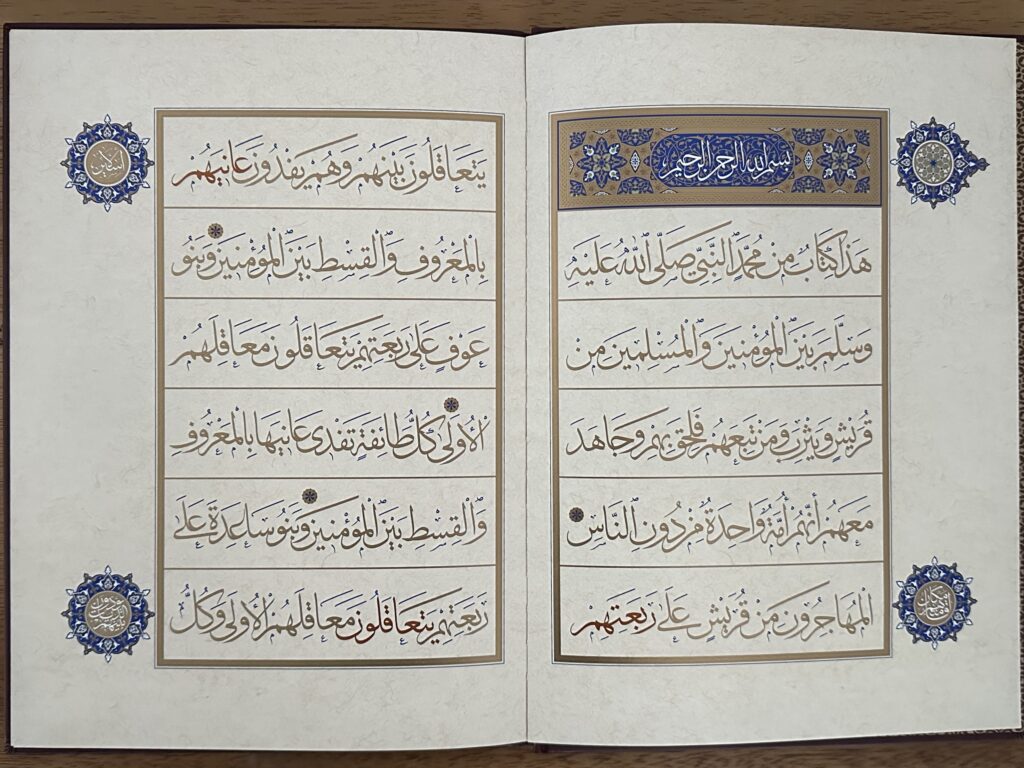 بسم الله الرحمن الرحيم
هَذَا كِتَابٌ مِنْ مُحَمَّدٍ النَّبِيِّ صَلَّى اللهُ عَلَيْهِ
وَسَلَّمَ بَيْنَ الْمُؤْمِنِينَ وَالْمُسْلِمِينَ مِنْ
قُرَيْشٍ وَيَثْرِبَ وَمَنْ تَبِعَهُمْ فَلَحِقَ بِهِمْ وَجَاهَدَ
مَعَهُمْ أَنَّهُمْ أُمَّةٌ وَاحِدَةٌ مِنْ دُونِ النَّاسِ
الْمُهَاجِرُونَ مِنْ قُرَيْشٍ عَلَى رَبَعَتِهِمْ
يَتَعَاقَلُونَ بَيْنَهُمْ وَهُمْ يَفْدُونَ عَانِيَهُمْ
بِالْمَعْرُوفِ وَالْقِسْطِ بَيْنَ الْمُؤْمِنِينَ وَبَنُو
عَوْفٍ عَلَى رَبَعَتِهِمْ يَتَعَاقَلُونَ مَعَاقِلَهُمُ
الْأُولَى كُلُّ طَائِفَةٍ تَفْدِي عَانِيَهَا بِالْمَعْرُوفِ
وَالْقِسْطِ بَيْنَ الْمُؤْمِنِينَ وَبَنُو سَاعِدَةَ عَلَى
رَبَعَتِهِمْ يَتَعَاقَلُونَ مَعَاقِلَهُمُ الْأُولَى وَكُلُّ